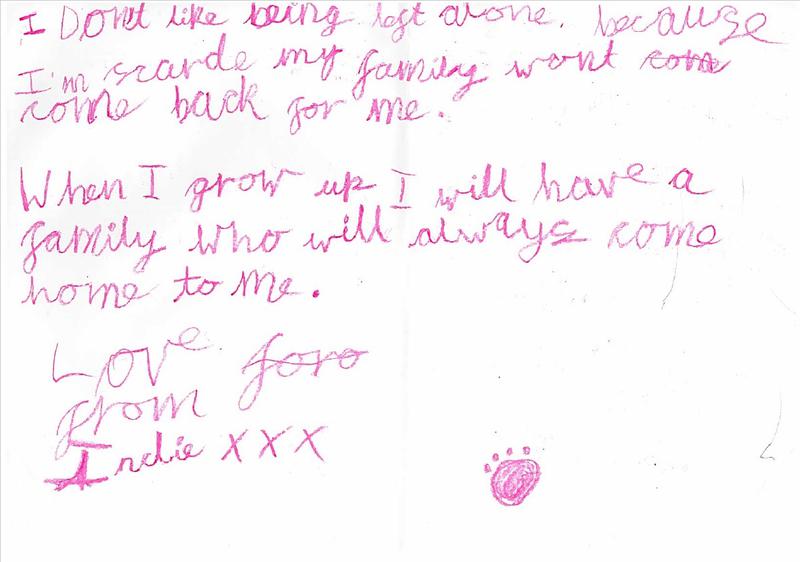 I Dont like being left alone. because
I'm scarde my family wont com
come back for me.
When I grow up I will have a
family who will always come
home to me.
Love foro
from
Indie xxx